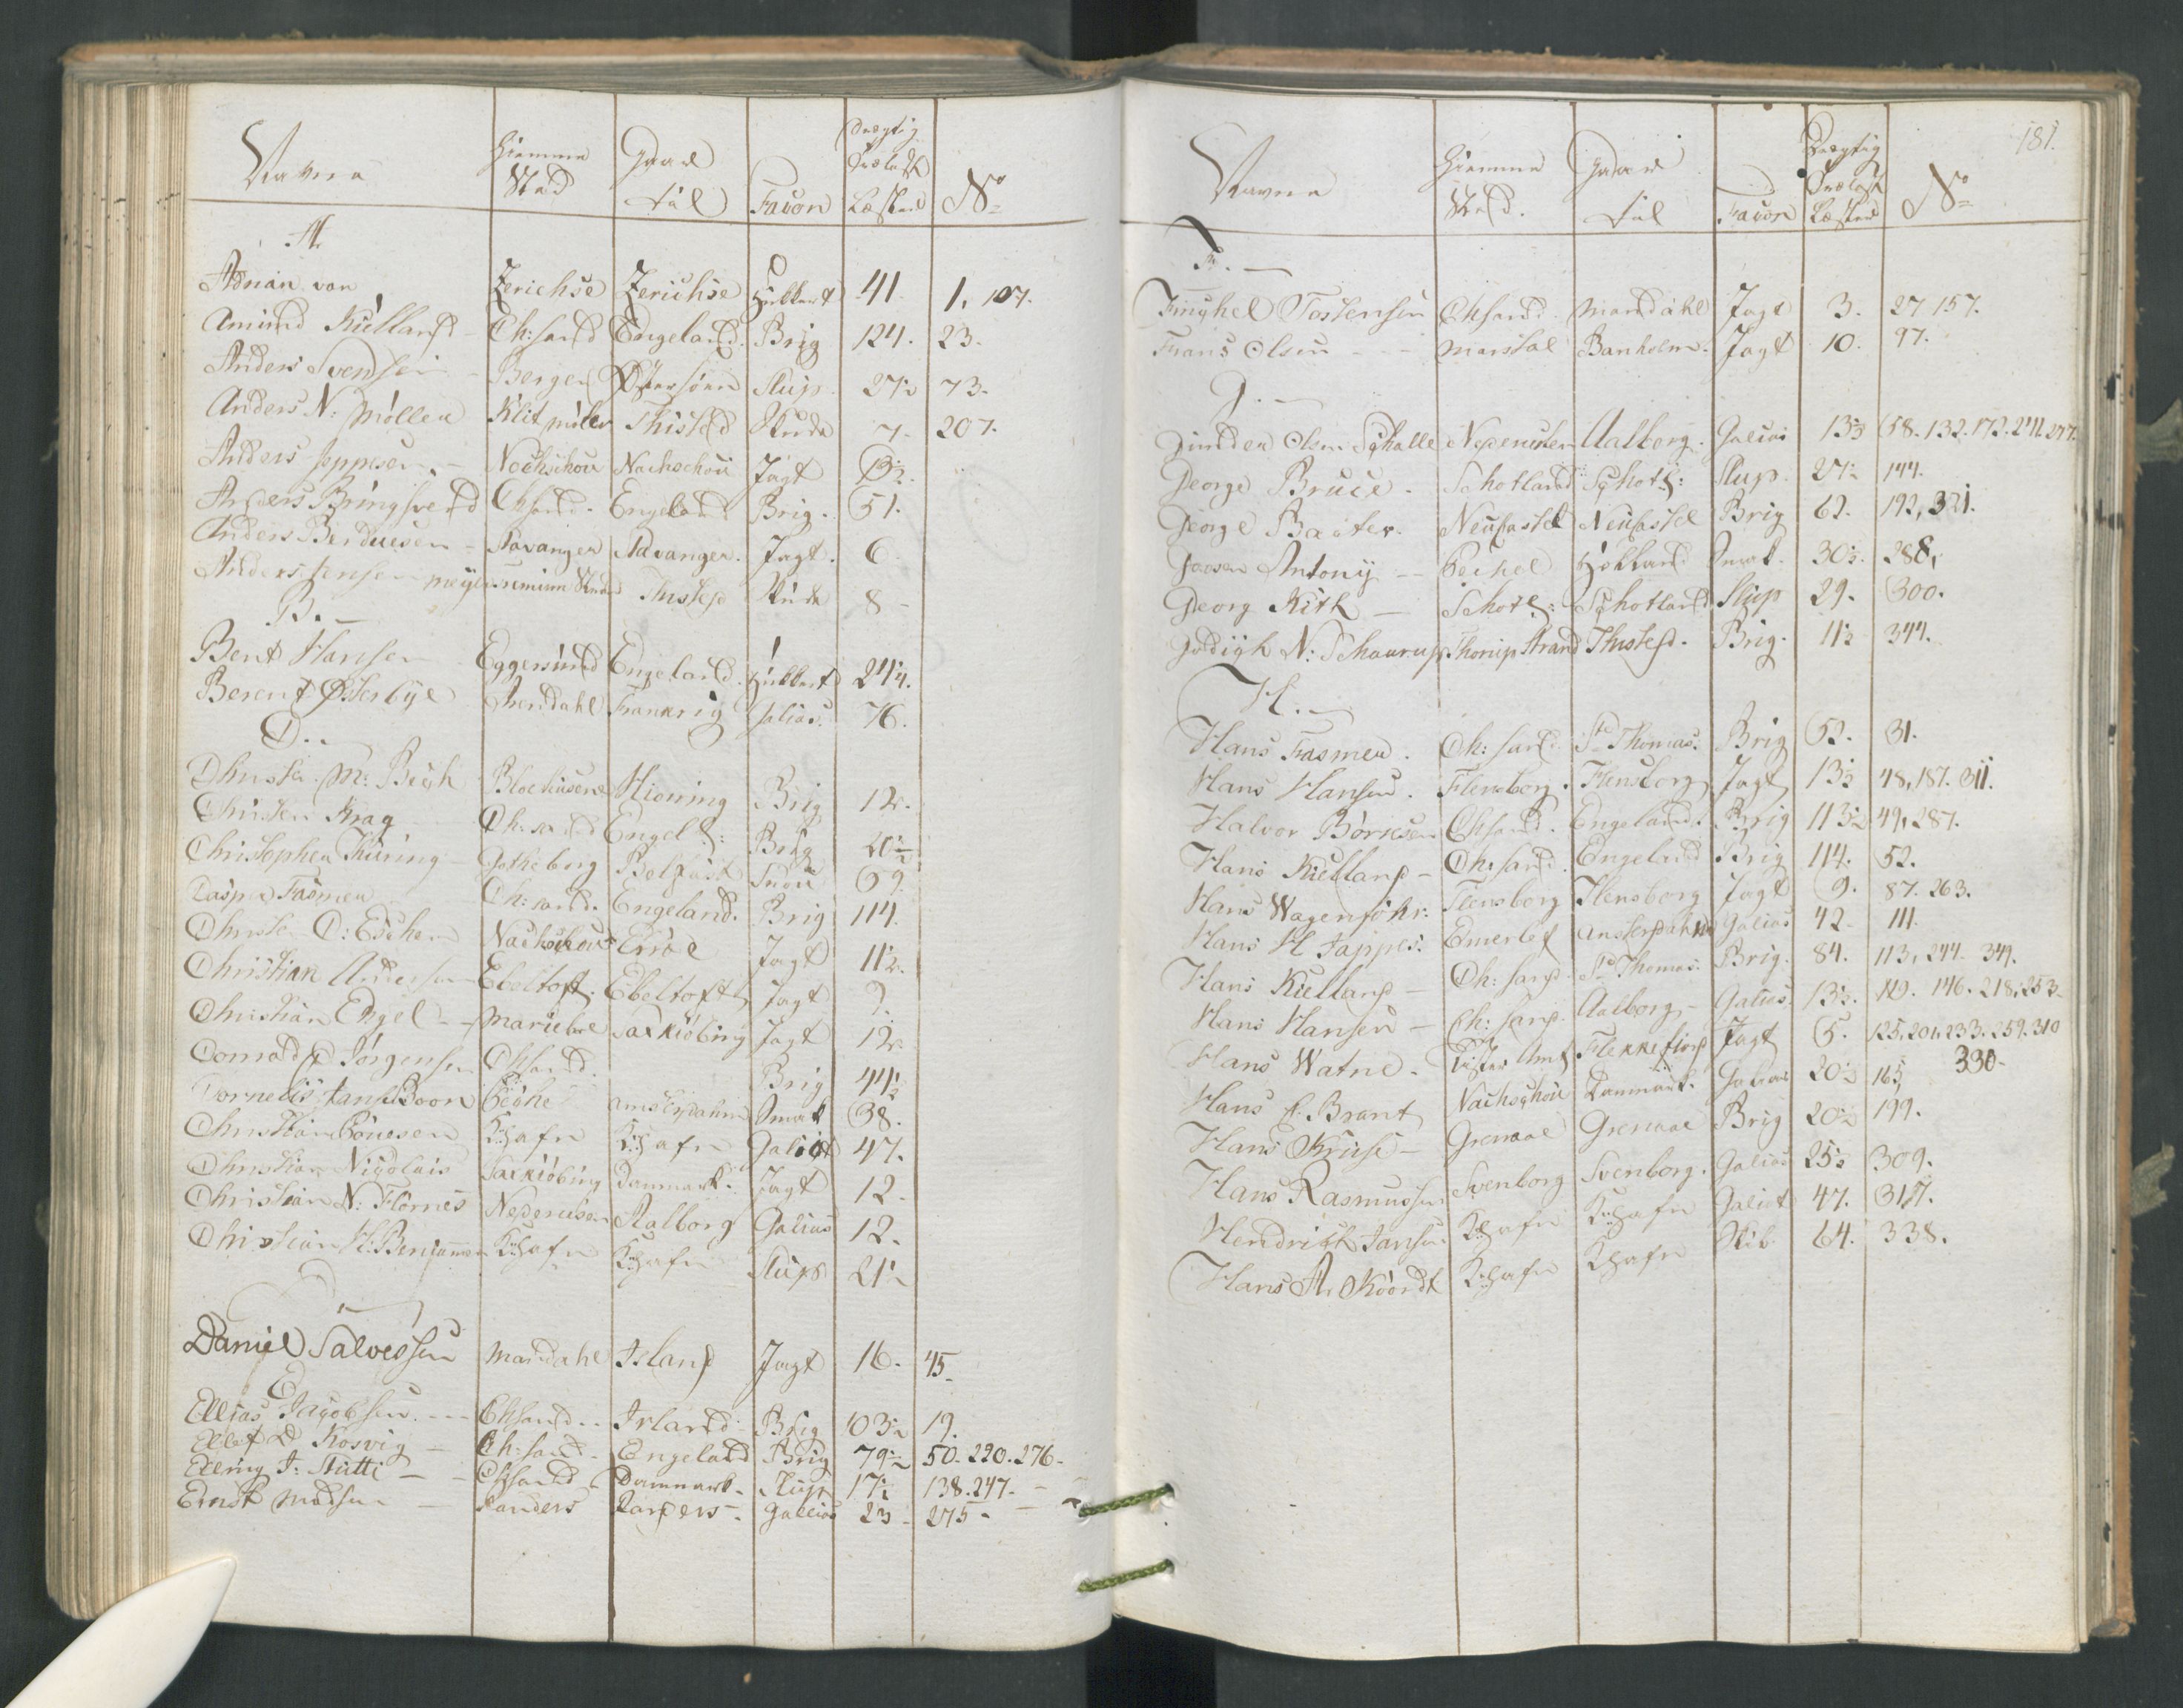 Navne Hiemme Sted Gaar til Facon Drægtig Trælast Læster No
A.
Adrian van Zerichse Zerichse Hukkert 41. 1, 107.
Amund Kielland Ch:sand Engeland. Brig 124. 23.
Anders Svendsen Bergen Østersøen Slup 27½ 73.
Anders N: Møller Klitmøller Thisted Skude 7. 207.
Anders Jeppesen Nachschou Nachschou Jagt 13½.
Anders Bringsverd Chsand. Engeland Brig. 51.
Anders Berduesen Stavanger Stavanger. Jagt. 6
Anders Jensen Thisted Skude 8
B.
Bent Hansen Eggersund Engeland. Hukkert 24¼.
Berent Østerbye Arendahl Frankrig Galias. 76.
C.
Christen M: Begh Blochusene Hiøring Brig 12.
Christen Krag Ch:sand Engel: Brig 20½
Christopher Thuring Gotheborg Belfast Snou 69.
Casper Fasmer Ch:sand. Engeland. Brig 114.
Christen C: Eschen Nachschou Erröe Jagt 11½.
Christian Andersen Ebeltoft. Ebeltoft Jagt 9.
Christian Engel Marieboe Saxkiøbing Jagt 12.
Conrad Jørgensen Chsand. Brig 44½
Cornelis Jans Boon Amsterdahm Smak 38.
Christian Bonesen K:hafn K:hafn Galiot 47.
Christian Nicolais Saxkiøbing Danmark. Jagt 12.
Christian N: Flornes Nedenæs Aalborg Galias 12.
Christian H: Benjamin K:hafn K:hafn Slup 21½
D
Daniel Salvessen Mandahl Island Jagt 16. 45
E
Ellias Jacobsen Chsand. Irland Brig 103½ 19.
Ellef D Kosvig Ch:sand Engeland Brig 79½ 50. 220. 276.
Elling T: Stutte Chsand Danmark. Slup 17½ 138. 247.
Ernst Madsen Randers Randers Galias 23 275
181.
Navne Hiemme Sted. Gaar til Facon Drægtig Trælast Læster No
F.
Finghel Tostensen Chsand. Mandahl Jagt 3. 27 157.
Frans Olsen Marstal Banholm. Jagt 10. 97.
G.
Gunder Olsen Schalle Nedenæs Aalborg. Galias 13½ 58. 132. 172. 241. 277.
George Bruce. Schotland Schotl: Slup. 27½ 144.
George Baxter. Neucastel Neucastel Brig 62. 192, 321.
Jansen Antony Holland Smak. 30½. 288,
Georg Kith Schotl: Schotland Slup 29. 300.
Godich N: Schaarup Thorup Strand Thisted. Brig. 11½ 344.
H.
Hans Fasmer. Ch:sand St Thomas. Brig 52. 31.
Hans Hansen. Flensborg. Flensborg Jagt 13½ 48, 187. 311.
Halvor Børresen Chsand. Engeland. Brig 113½ 49, 287.
Hans Kielland Ch:sand. Engeland Brig 114. 52.
Hans Wagenføhr: Flensborg Flensborg Jagt 9. 87. 263.
Hans H Jappes: Emerlef Amsterdahm Galias 42. 111.
Hans Kielland Ch:sand. St Thomas. Brig. 84. 113, 244. 349.
Hans Hansen Ch:sand. Aalborg Galias. 13½. 119. 146. 218, 253.
Hans Watne. Lister Amt Flekkefiord Jagt 5. 125, 201, 233. 259. 310 330.
Hans C. Brant Nachschou Danmark. Galias 20½ 165
Hans Kruse Grenaae Grenaae Brig 20½ 199.
Hans Rasmussen Svenborg Svenborg. Galias 25½ 309.
Hendrich Jansen K:hafn K:hafn Galiot 47. 317.
Hans A. Koordt K:hafn K:hafn Skib. 64. 338.